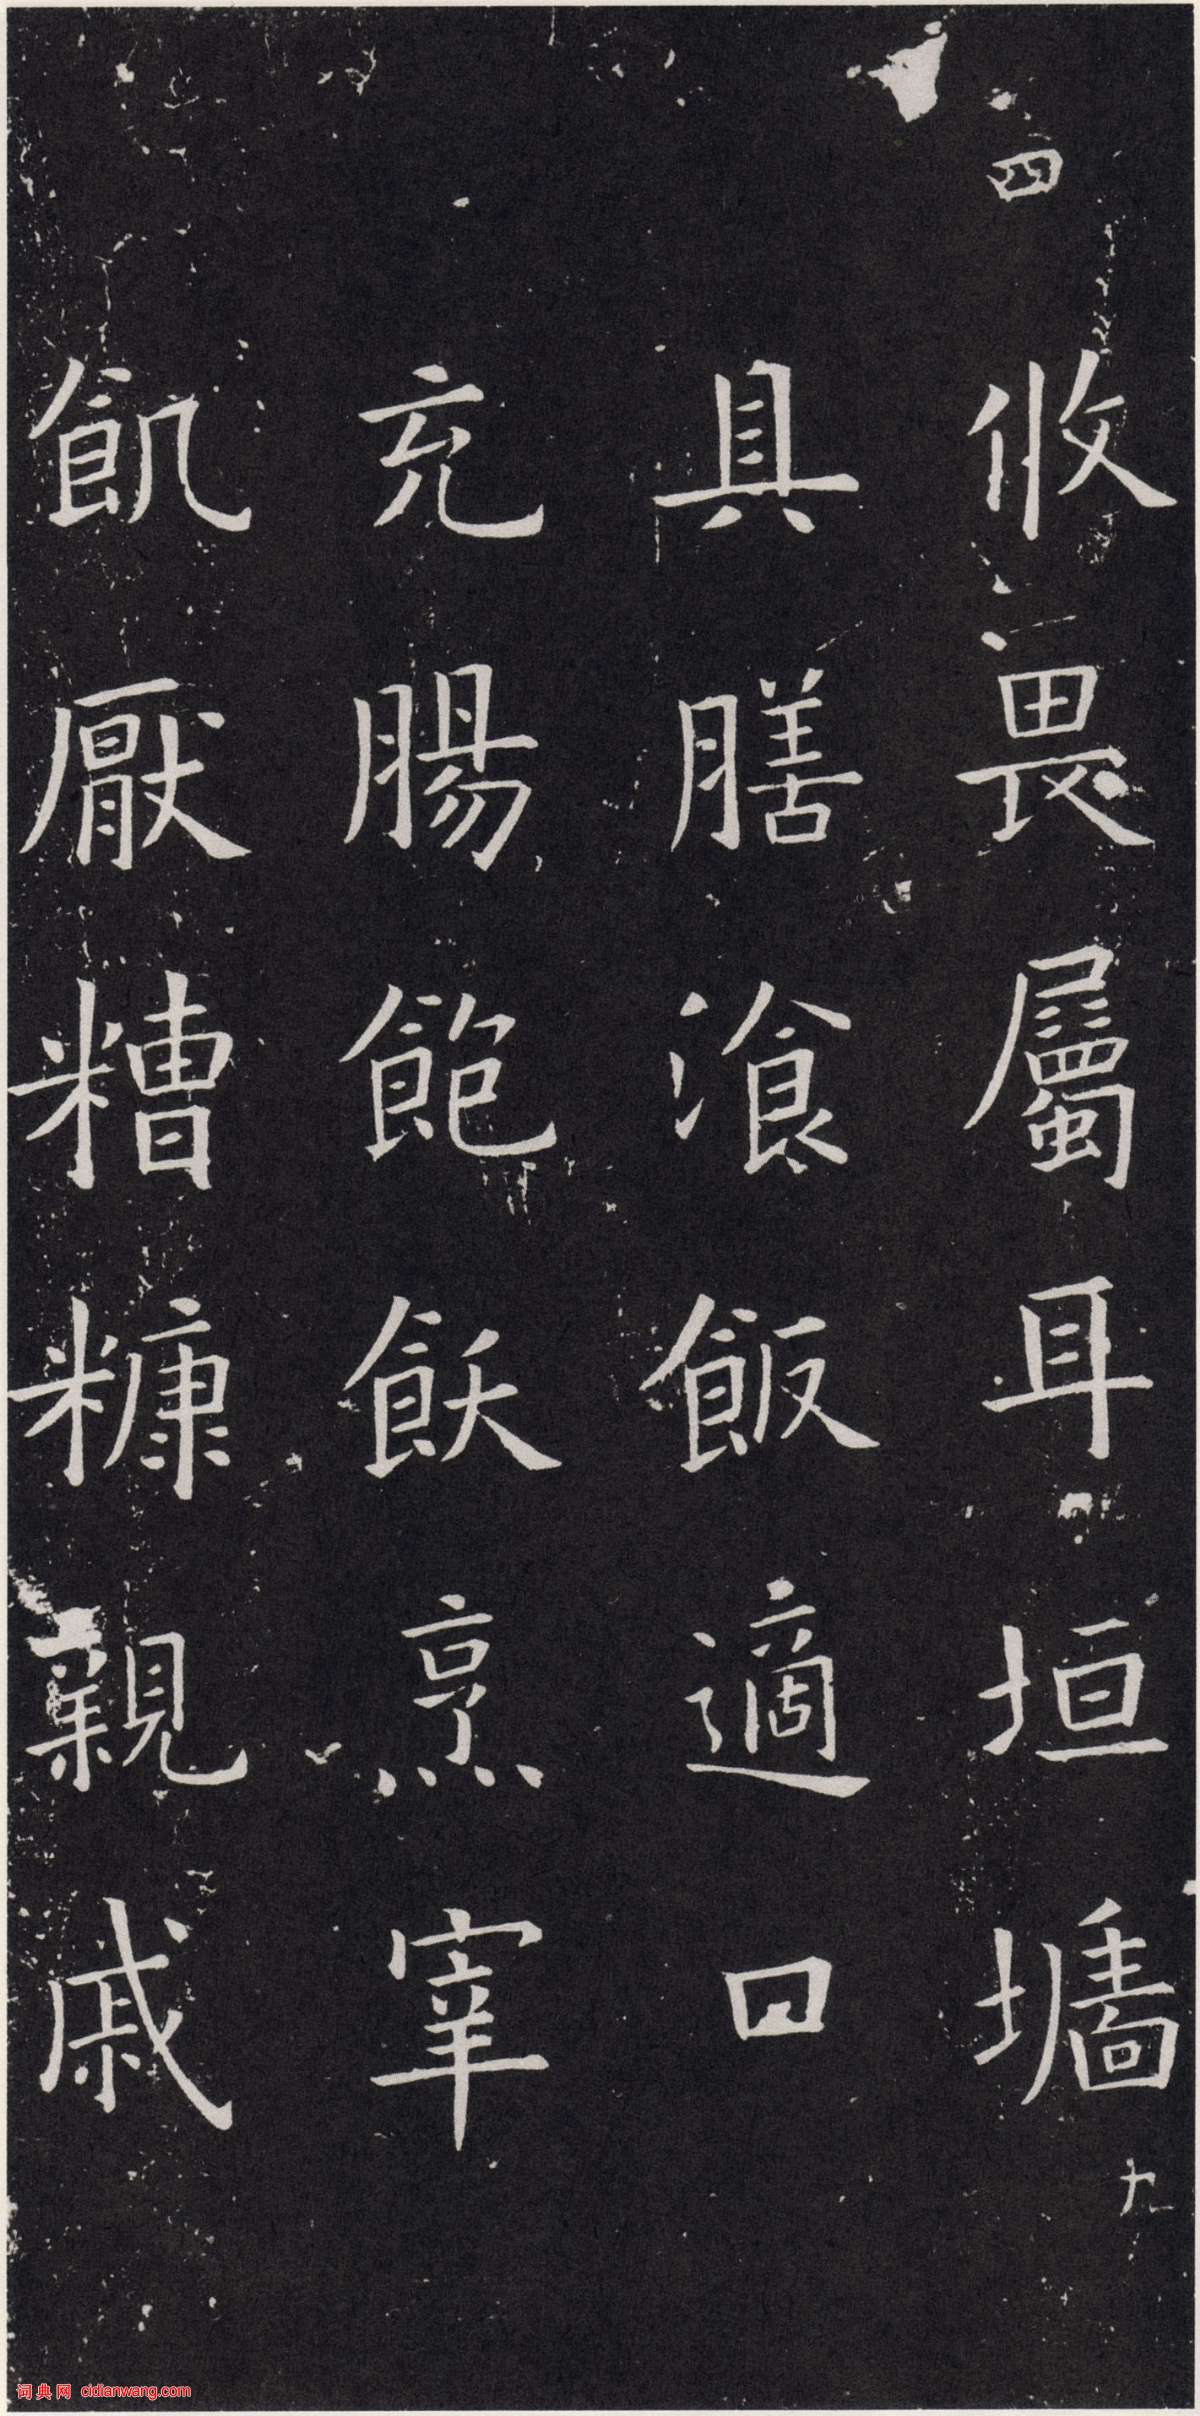 四
攸畏屬耳垣墻
九
具膳飡飯適口
充腸飽飫烹宰
飢厭糟糠親戚
词典网 cidianwang.com